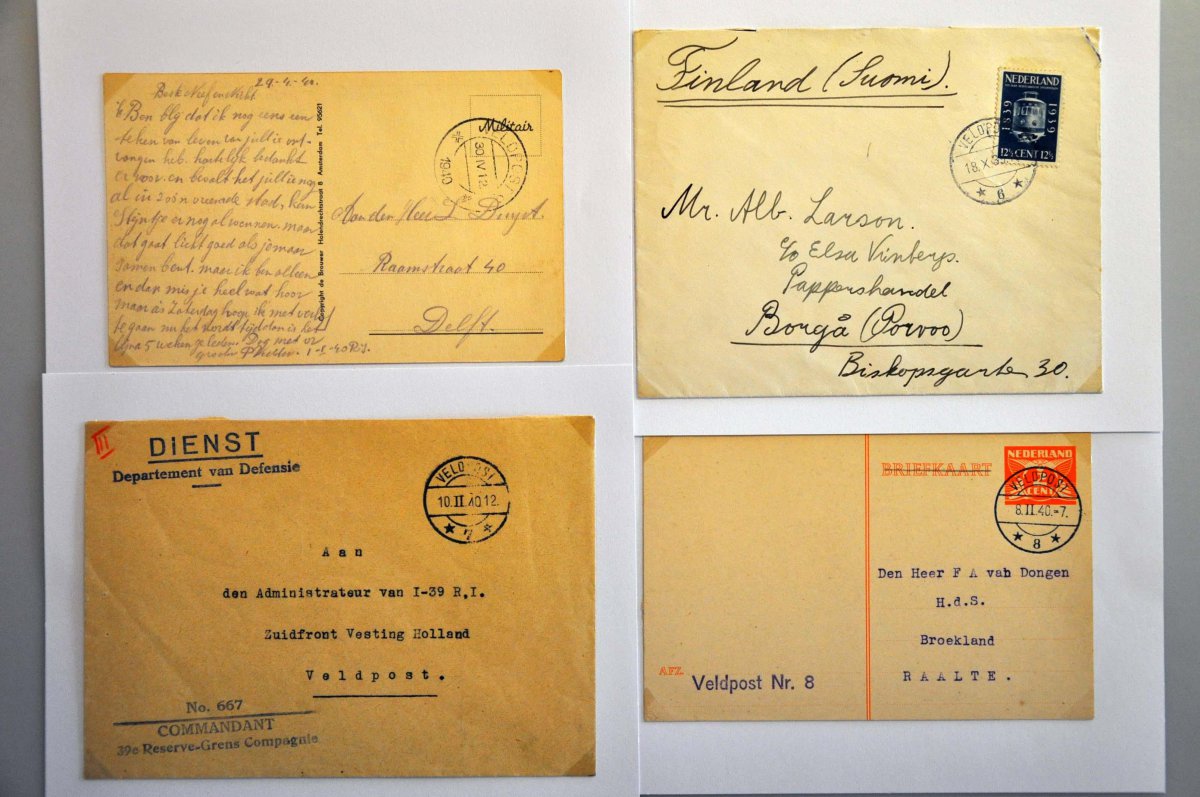 29-4-40.
Ben bly dat ik nog eens een
teken van leven van jullie ont-
vangen heb. hartelijk bedankt
er voor. en bevalt het jullie nog
al in zoo'n vreemde stad, kan
Stijntje er nog al wennen. maar
dat gaat licht goed als je maar
samen bent. maar ik ben alleen
en dan mis je heel wat hoor
maar a.s. Zaterdag hoop ik met verlof
te gaan nu het wordt tijd dan is het
5 weken geleden. Dag met vr
groeten 1-I-40 R.I.
Copyright de Brouwer Holendrechtstraat 8 Amsterdam Tel. 95621
Militair
VELDPOST
30 IV 12
1940
Aan den Heer L.
Raamstraat 40
Delft.
Finland (Suomi).
NEDERLAND
1839
1939
12½ CENT 12½
VELDPOST
18.X
6
Mr. Alb. Larson.
c/o Elsa Vinbergs.
Pappershandel
Borgå (Porvoo)
Biskopsgarte 30.
III
DIENST
Departement van Defensie
VELDPOST
10.II.40.12.
7
Aan
den Administrateur van I-39 R.I.
Zuidfront Vesting Holland
Veldpost.
No. 667
COMMANDANT
39e Reserve-Grens Compagnie
BRIEFKAART
NEDERLAND
CENT
VELDPOST
8.II.40.=7.
8
Den Heer F A van Dongen
H.d.S.
Broekland
RAALTE.
AFZ.
Veldpost Nr. 8